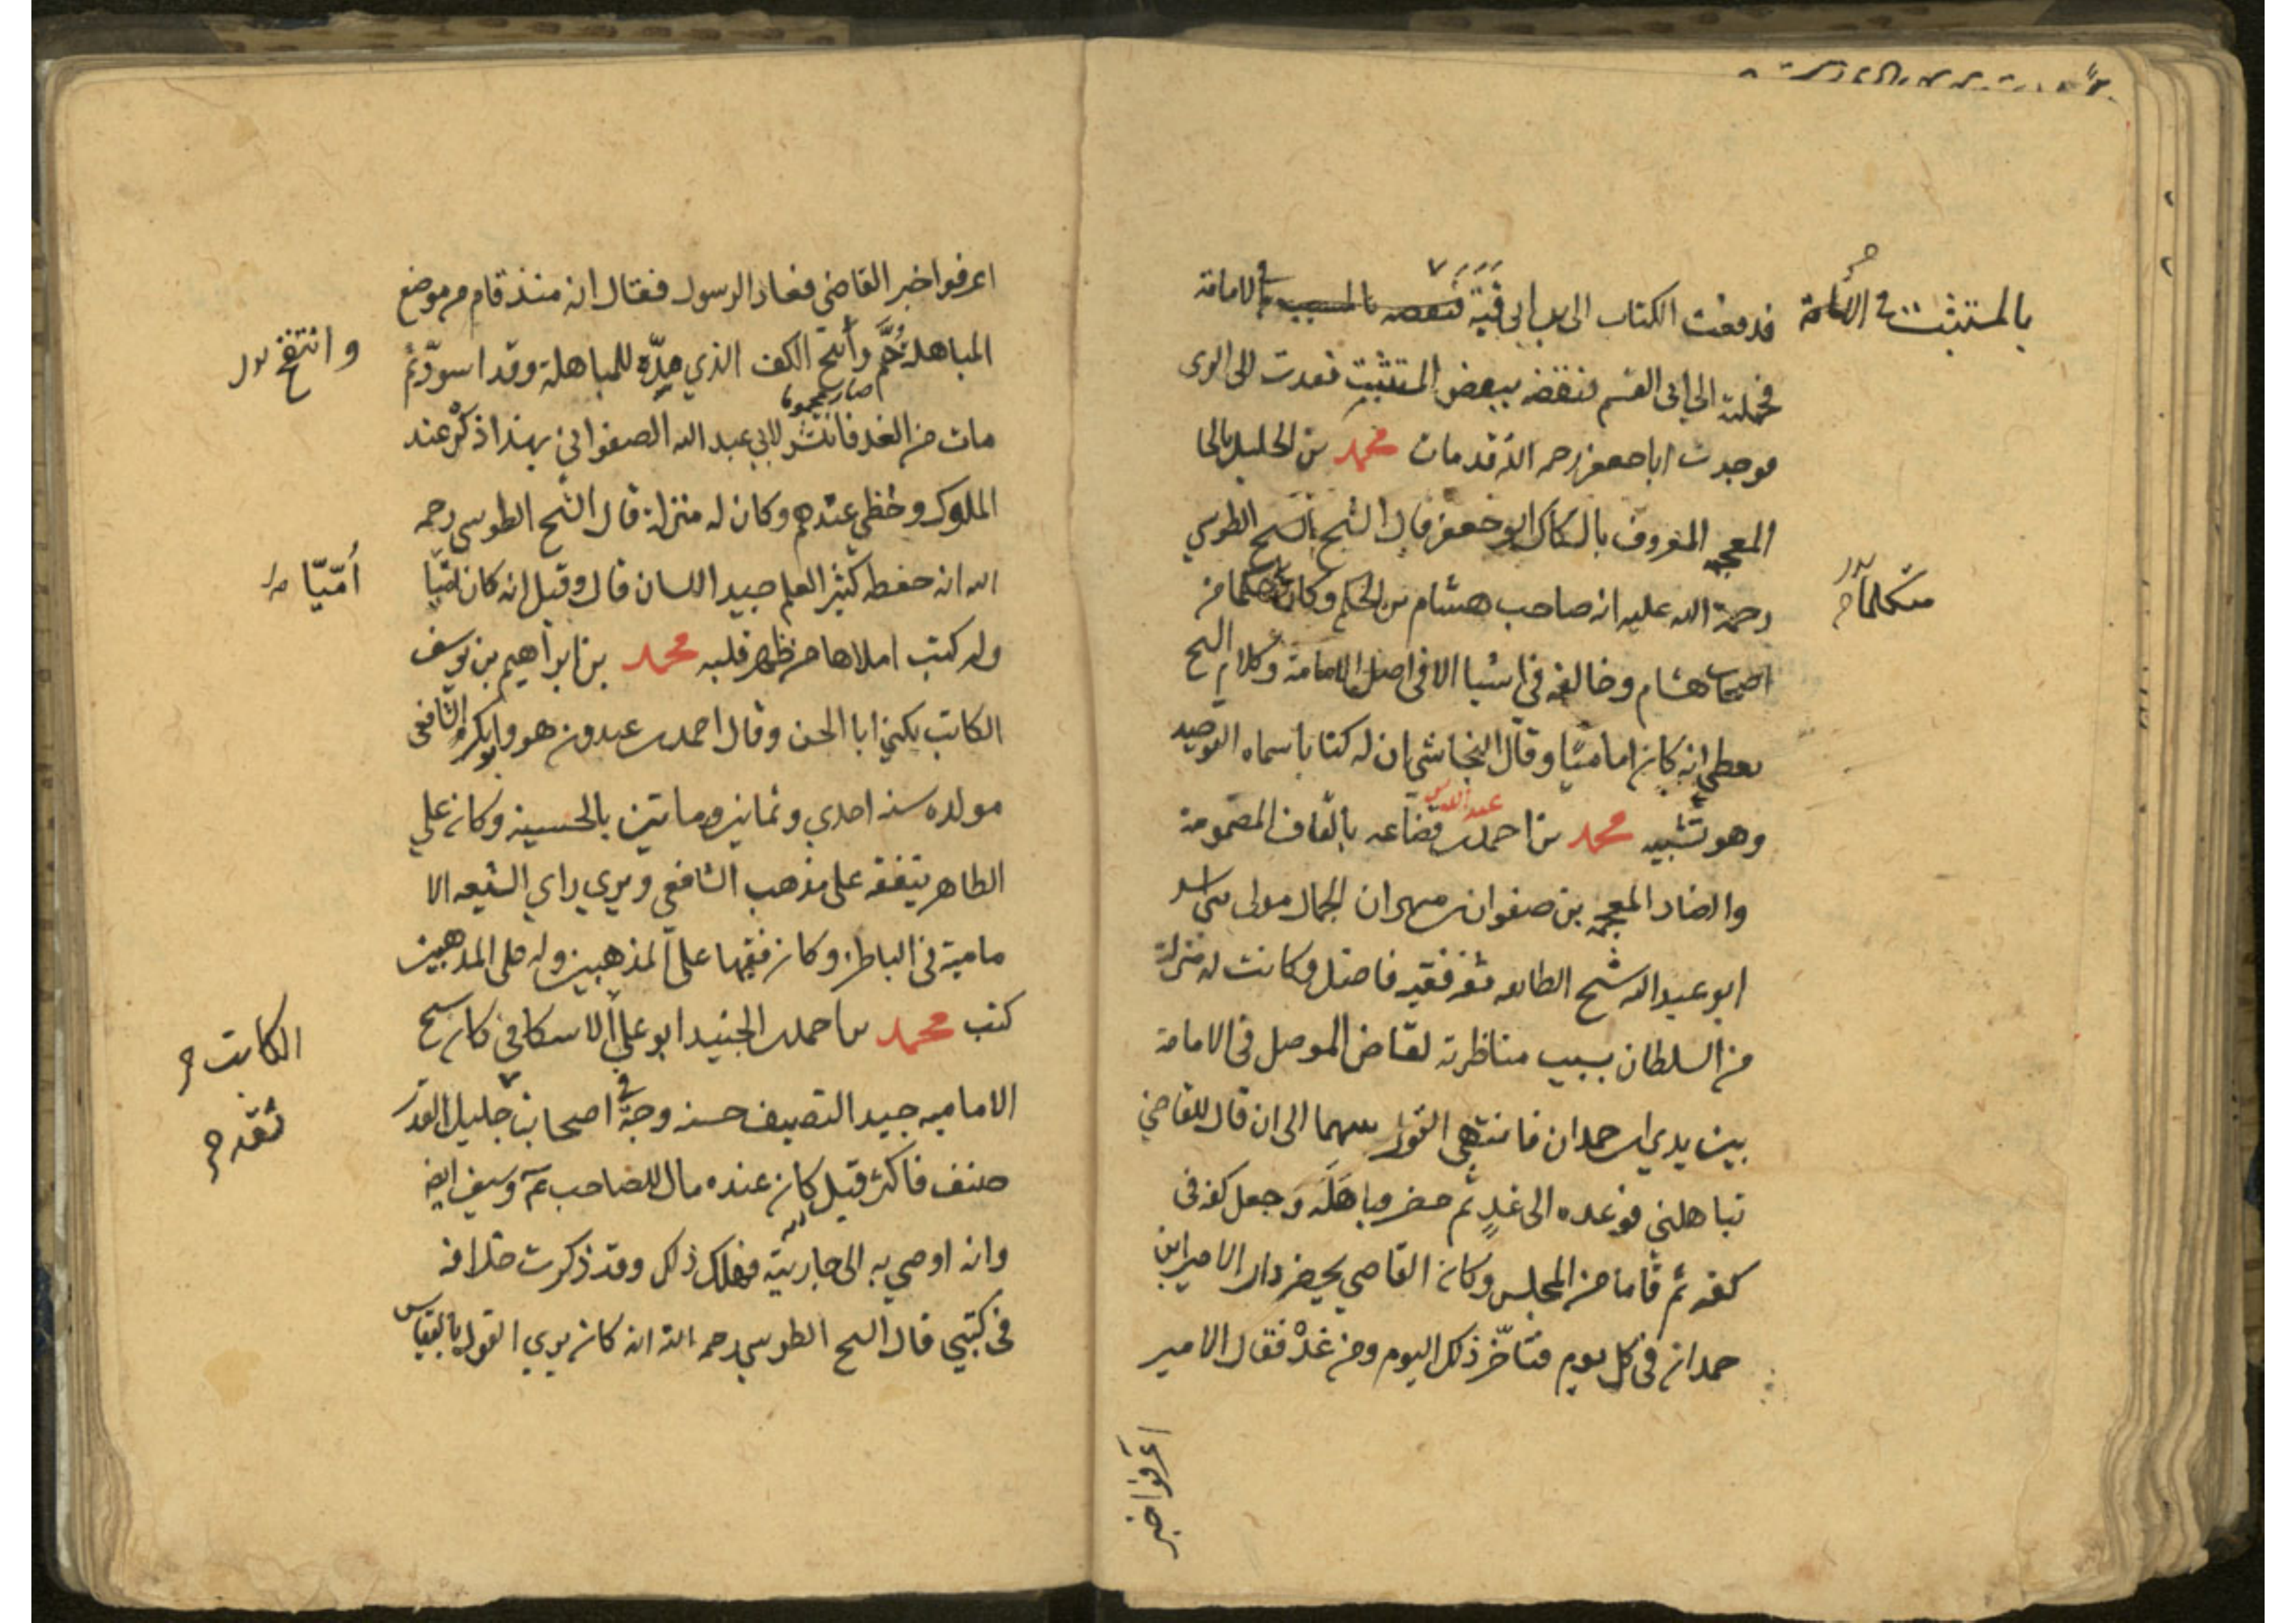 فدفعت الكتاب الى ابن ابى قبة فنقضه بالمستثبت في الامامة
بالمستثبت في الامامة
فحملته الى ابى القسم فنقضه بنقض المستثبت فعدت الى الرى
فوجدت ابا جعفر رحمه الله قد مات محمد بن الخليل بالخا
المعجمه المعروف بالسكاك ابو جعفر قال الشيخ الطوسي
رحمة الله عليه انه صاحب هشام بن الحكم وكان متكلما من
متكلما
اصحاب هشام وخالفه في اشيا الا فى اصل الامامة وكلام الشيخ
يعطى انه كان اماميّا وقال النجاشي ان له كتابا سماه التوحيد
وهو تشبيه محمد بن احمد بن عبد الله بن قضاعه بالقاف المضمومة
والضاد المعجمه بن صفوان بن مهران الجمال مولى بنى اسد
ابو عبد الله شيخ الطائفه ثقة فقيه فاضل وكانت له منزلة
من السلطان بسبب مناظرته لقاضى الموصل فى الامامة
بين يدي ابن حمدان فانتهى القول بينهما الى ان قال للقاضي
تباهلني فوعده الى غدٍ ثم حضر فباهَلَه وجعل كفه فى
كفه ثم قاما من المجلس وكان القاضي يحضر دار الامير ابن
حمدان فى كل يوم فتأخّر ذلك اليوم ومن غدْ فقال الامير
اعرفوا خبر
اعرفوا خبر القاضى فعاد الرسول فقال انه منذ قام من موضع
المباهله حُمَّ وانتفخ الكف الذي مدّه للمباهلة وقد اسودّ ثم
وانتفخ
مات من الغد فانتشر لابي عبد الله الصفواني بهذا ذكْر عند
الملوك وحظي عندهم وكان له منزلة قال الشيخ الطوسي رحمه
الله انه حفظه كثير العلم جيد اللسان قال وقيل انه كان اميّا
أُمّيّا
وله كتب املاها من ظهر قلبه محمد بن ابراهيم بن يوسف
الكاتب يكنى ابا الحسن وقال احمد بن عبدون هو ابو بكر الشافعى
مولده سنه احدي وثمانين ومائتين بالحسينيه وكان على
الظاهر يتفقه على مذهب الشافعي ويري راي الشيعه الا
مامية فى الباطن وكان فقيها على المذهبين وله على المذهبين
كتب محمد بن احمد بن الجنيد ابو علي الاسكافي كان شيخ
الكاتب
الاماميه جيد التصنيف حسنه وجه في اصحابنا جليل القدر
ثقه
صنف فاكثر قيل كان عنده مال للصاحب عم وسيف ايضا
وانه اوصي به الى جاريته فهلك ذلك وقد ذكرت خلافه
فى كتبي قال الشيخ الطوسي رحمه الله انه كان يري القول بالقياس